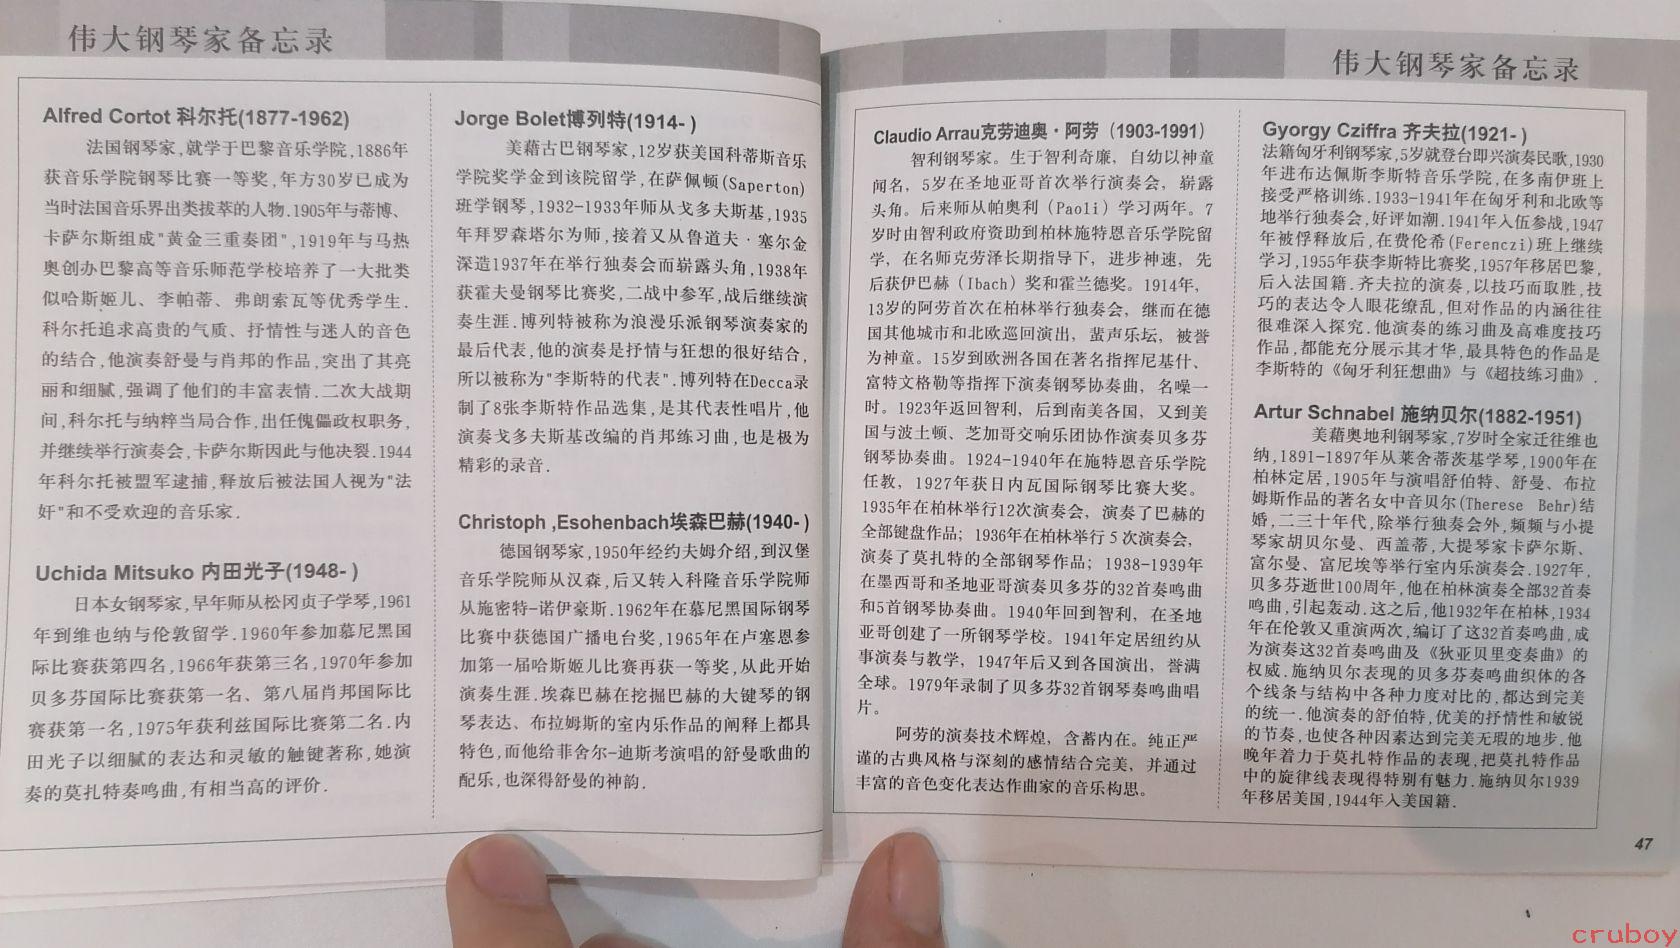 伟大钢琴家备忘录
Alfred Cortot 科尔托(1877-1962)
法国钢琴家,就学于巴黎音乐学院,1886年
获音乐学院钢琴比赛一等奖,年方30岁已成为
当时法国音乐界出类拔萃的人物.1905年与蒂博、
卡萨尔斯组成"黄金三重奏团",1919年与马热
奥创办巴黎高等音乐师范学校培养了一大批类
似哈斯姬儿、李帕蒂、弗朗索瓦等优秀学生.
科尔托追求高贵的气质、抒情性与迷人的音色
的结合,他演奏舒曼与肖邦的作品,突出了其亮
丽和细腻,强调了他们的丰富表情.二次大战期
间,科尔托与纳粹当局合作,出任傀儡政权职务,
并继续举行演奏会,卡萨尔斯因此与他决裂.1944
年科尔托被盟军逮捕,释放后被法国人视为"法
奸"和不受欢迎的音乐家.
Uchida Mitsuko 内田光子(1948- )
日本女钢琴家,早年师从松冈贞子学琴,1961
年到维也纳与伦敦留学.1960年参加慕尼黑国
际比赛获第四名,1966年获第三名,1970年参加
贝多芬国际比赛获第一名、第八届肖邦国际比
赛获第一名,1975年获利兹国际比赛第二名.内
田光子以细腻的表达和灵敏的触键著称,她演
奏的莫扎特奏鸣曲,有相当高的评价.
Jorge Bolet博列特(1914- )
美藉古巴钢琴家,12岁获美国科蒂斯音乐
学院奖学金到该院留学,在萨佩顿(Saperton)
班学钢琴,1932-1933年师从戈多夫斯基,1935
年拜罗森塔尔为师,接着又从鲁道夫·塞尔金
深造1937年在举行独奏会而崭露头角,1938年
获霍夫曼钢琴比赛奖,二战中参军,战后继续演
奏生涯.博列特被称为浪漫乐派钢琴演奏家的
最后代表,他的演奏是抒情与狂想的很好结合,
所以被称为"李斯特的代表".博列特在Decca录
制了8张李斯特作品选集,是其代表性唱片,他
演奏戈多夫斯基改编的肖邦练习曲,也是极为
精彩的录音.
Christoph ,Esohenbach埃森巴赫(1940- )
德国钢琴家,1950年经约夫姆介绍,到汉堡
音乐学院师从汉森,后又转入科隆音乐学院师
从施密特-诺伊豪斯.1962年在慕尼黑国际钢琴
比赛中获德国广播电台奖,1965年在卢塞恩参
加第一届哈斯姬儿比赛再获一等奖,从此开始
演奏生涯.埃森巴赫在挖掘巴赫的大键琴的钢
琴表达、布拉姆斯的室内乐作品的阐释上都具
特色,而他给菲舍尔-迪斯考演唱的舒曼歌曲的
配乐,也深得舒曼的神韵.
伟大钢琴家备忘录
Claudio Arrau克劳迪奥·阿劳（1903-1991）
智利钢琴家。生于智利奇廉，自幼以神童
闻名，5岁在圣地亚哥首次举行演奏会，崭露
头角。后来师从帕奥利（Paoli）学习两年。7
岁时由智利政府资助到柏林施特恩音乐学院留
学，在名师克劳泽长期指导下，进步神速，先
后获伊巴赫（Ibach）奖和霍兰德奖。1914年，
13岁的阿劳首次在柏林举行独奏会，继而在德
国其他城市和北欧巡回演出，蜚声乐坛，被誉
为神童。15岁到欧洲各国在著名指挥尼基什、
富特文格勒等指挥下演奏钢琴协奏曲，名噪一
时。1923年返回智利，后到南美各国，又到美
国与波士顿、芝加哥交响乐团协作演奏贝多芬
钢琴协奏曲。1924-1940年在施特恩音乐学院
任教，1927年获日内瓦国际钢琴比赛大奖。
1935年在柏林举行12次演奏会，演奏了巴赫的
全部键盘作品；1936年在柏林举行５次演奏会，
演奏了莫扎特的全部钢琴作品；1938-1939年
在墨西哥和圣地亚哥演奏贝多芬的32首奏鸣曲
和5首钢琴协奏曲。1940年回到智利，在圣地
亚哥创建了一所钢琴学校。1941年定居纽约从
事演奏与教学，1947年后又到各国演出，誉满
全球。1979年录制了贝多芬32首钢琴奏鸣曲唱
片。
阿劳的演奏技术辉煌，含蓄内在。纯正严
谨的古典风格与深刻的感情结合完美，并通过
丰富的音色变化表达作曲家的音乐构思。
Gyorgy Cziffra 齐夫拉(1921- )
法籍匈牙利钢琴家,5岁就登台即兴演奏民歌,1930
年进布达佩斯李斯特音乐学院,在多南伊班上
接受严格训练.1933-1941年在匈牙利和北欧等
地举行独奏会,好评如潮.1941年入伍参战,1947
年被俘释放后,在费伦希(Ferenczi)班上继续
学习,1955年获李斯特比赛奖,1957年移居巴黎,
后入法国籍.齐夫拉的演奏,以技巧而取胜,技
巧的表达令人眼花缭乱,但对作品的内涵往往
很难深入探究.他演奏的练习曲及高难度技巧
作品,都能充分展示其才华,最具特色的作品是
李斯特的《匈牙利狂想曲》与《超技练习曲》.
Artur Schnabel 施纳贝尔(1882-1951)
美藉奥地利钢琴家,7岁时全家迁往维也
纳,1891-1897年从莱舍蒂茨基学琴,1900年在
柏林定居,1905年与演唱舒伯特、舒曼、布拉
姆斯作品的著名女中音贝尔(Therese Behr)结
婚,二三十年代,除举行独奏会外,频频与小提
琴家胡贝尔曼、西盖蒂,大提琴家卡萨尔斯、
富尔曼、富尼埃等举行室内乐演奏会.1927年,
贝多芬逝世100周年,他在柏林演奏全部32首奏
鸣曲,引起轰动.这之后,他1932年在柏林,1934
年在伦敦又重演两次,编订了这32首奏鸣曲,成
为演奏这32首奏鸣曲及《狄亚贝里变奏曲》的
权威.施纳贝尔表现的贝多芬奏鸣曲织体的各
个线条与结构中各种力度对比的,都达到完美
的统一.他演奏的舒伯特,优美的抒情性和敏锐
的节奏,也使各种因素达到完美无瑕的地步.他
晚年着力于莫扎特作品的表现,把莫扎特作品
中的旋律线表现得特别有魅力.施纳贝尔1939
年移居美国,1944年入美国籍.
47
cruboy